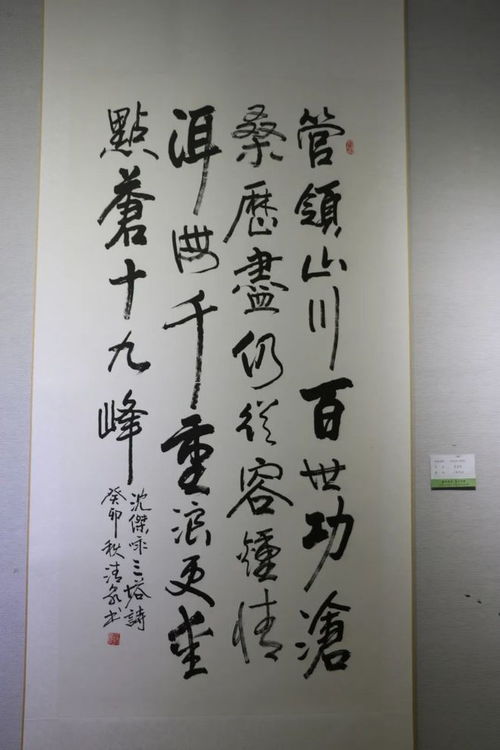 管領山川百世功滄
桑歷盡仍從容鍾情
洱海千重浪更愛
點蒼十九峰
沈傑咏三塔詩
癸卯秋清泉书